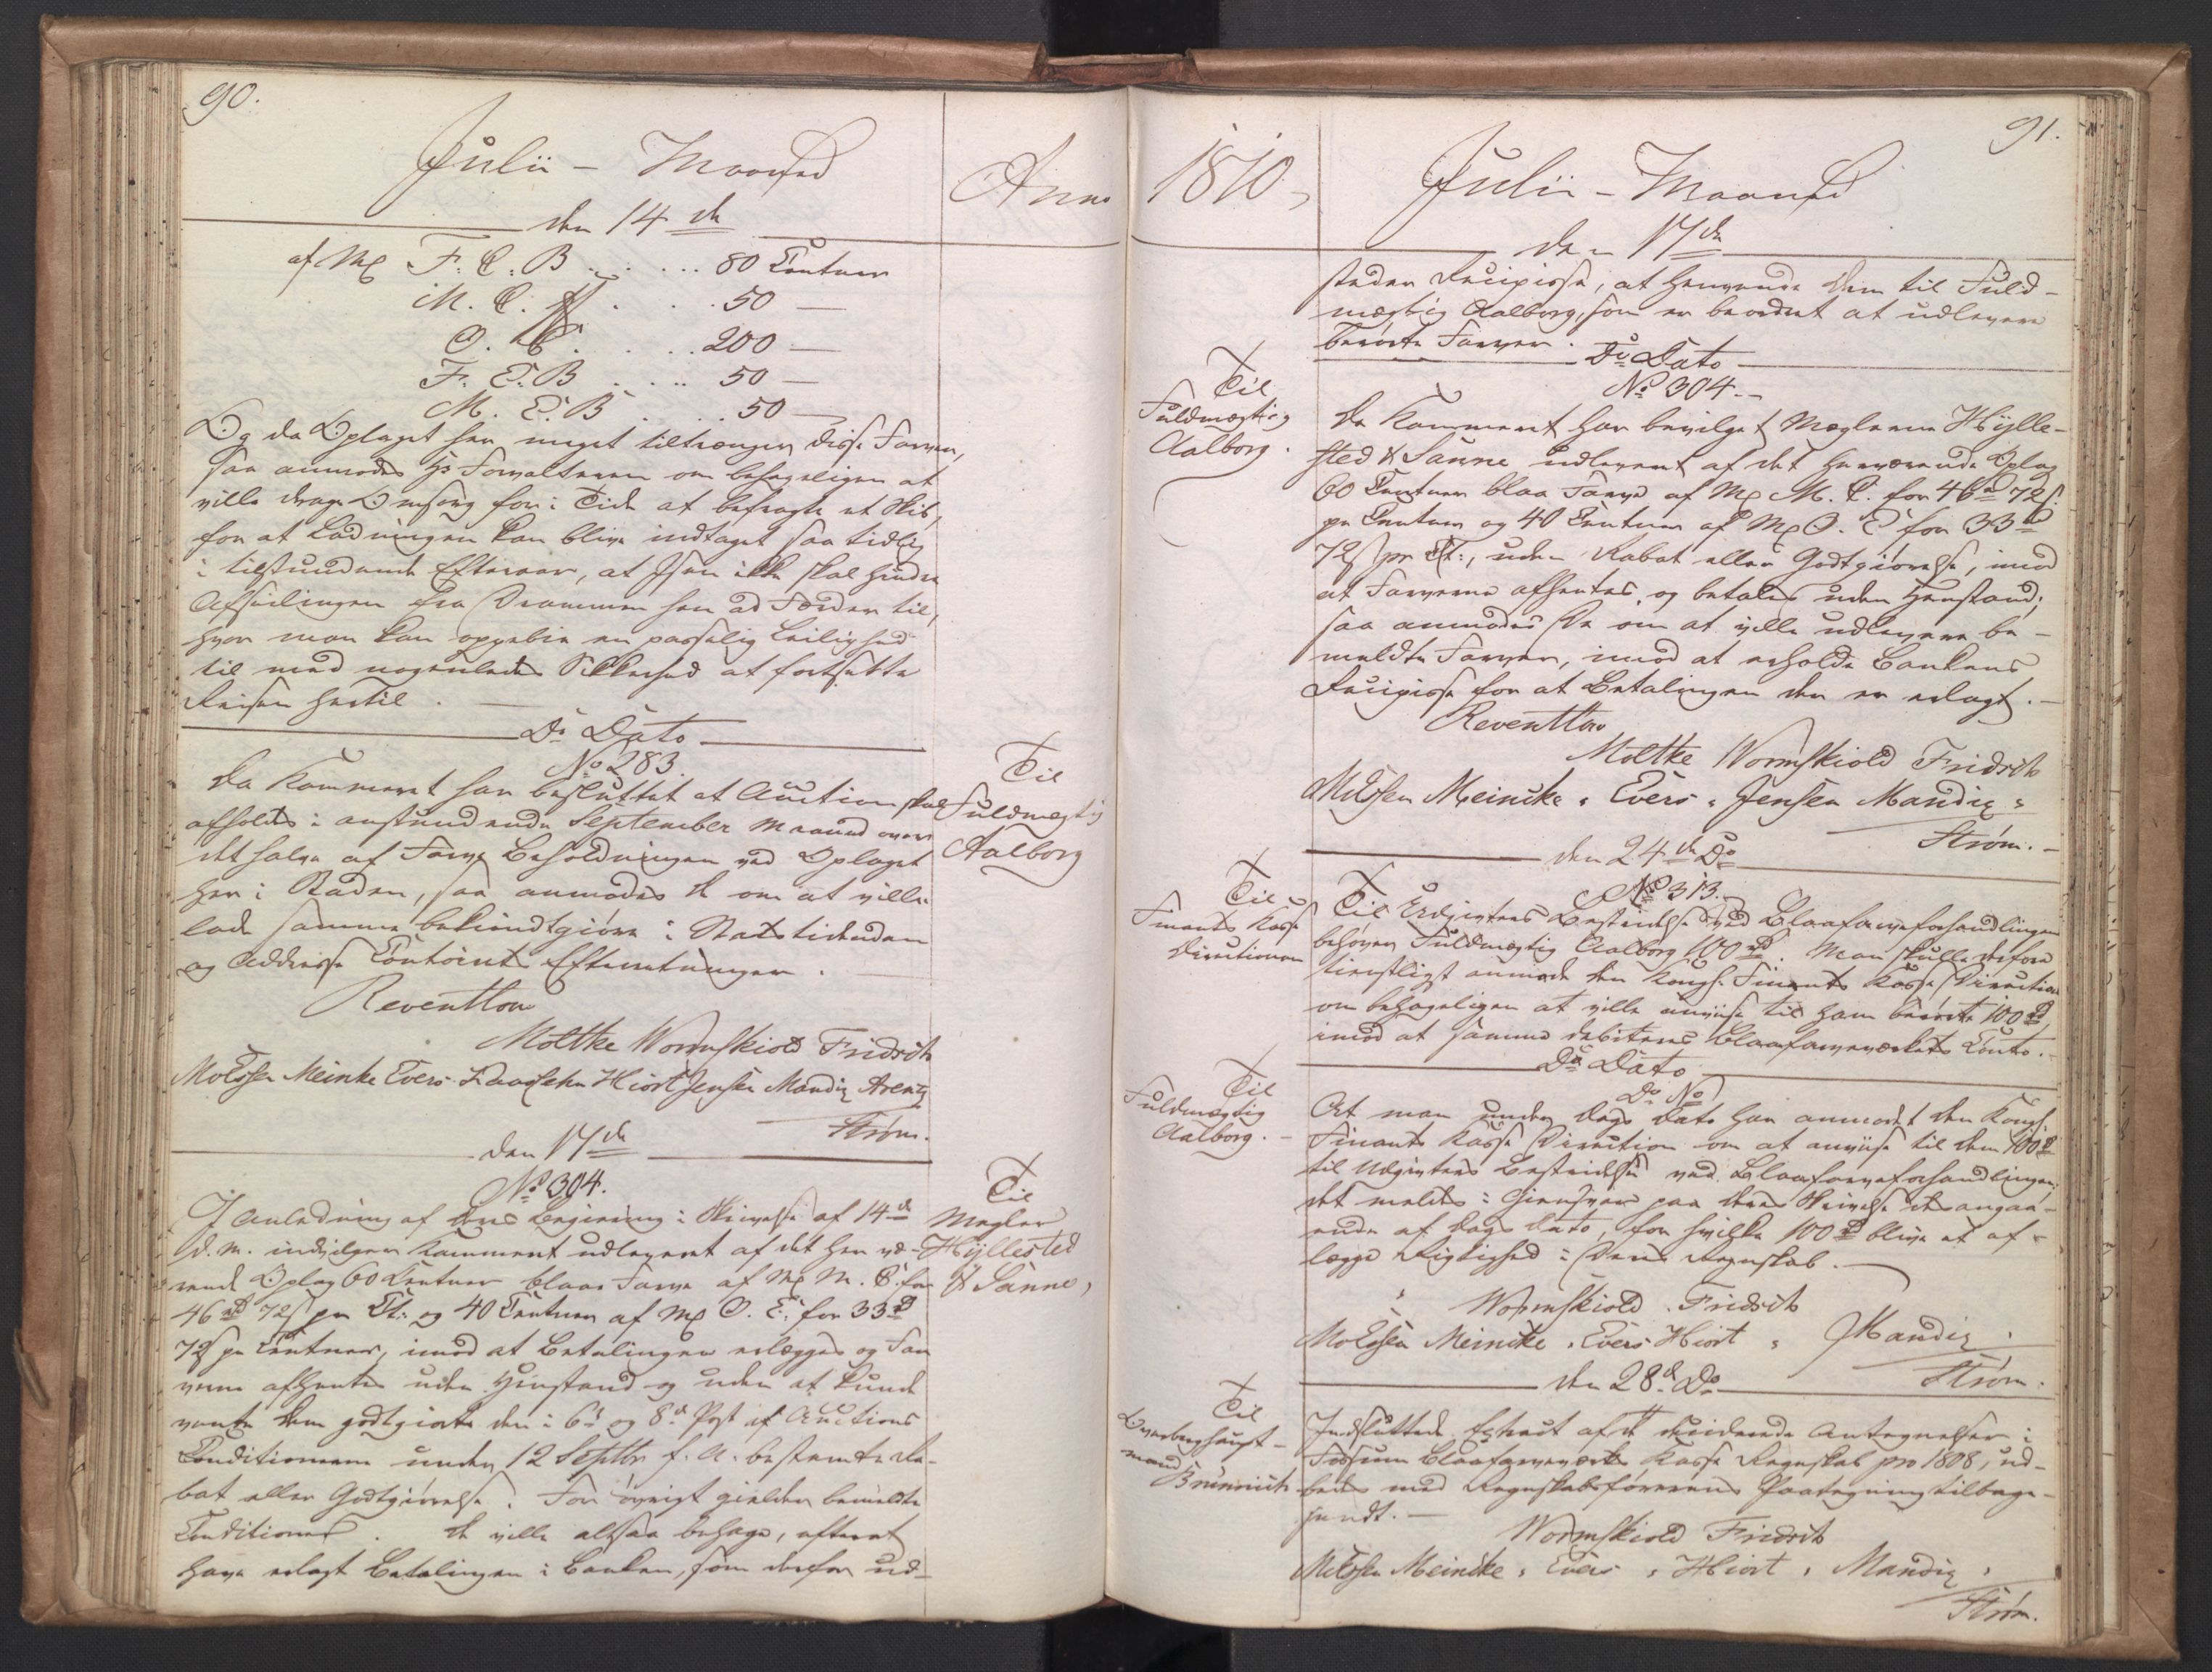 90.
Julii - Maaned
Anno
den 14de
af Mp F. C. B . . . . . 80 Centner
M. C. . . . 50 —
O. C. . . . . 200 —
F. E. B . . . . 50 —
M. E. B . . . . 50 —
Og da Oplaget her meget tiltrænger disse Farver,
saa anmodes Hr Forvalteren om behageligen at
ville drage Omsorg for i Tide at befragte et Skib,
for at Ladningen kan blive indtaget saa tidlig
i tilstundende Efteraar, at Isen ikke skal hindre
Afseilingen fra Drammen hen ad Færder til,
hvor man kan oppebie en passelig Leilighed
til med nogenledes Sikkerhed at fortsætte
Reisen hertil.
Do Dato
No 283.
Til
Fuldmægtig
Aalborg
Da Kammeret har besluttet at Auction skal
afholdes i anstundende September Maaned over
det halve af Farve Beholdningen ved Oplaget
her i Staden, saa anmodes De om at ville
lade samme bekiendtgiøre i Statstidenden
og Addresse Contoirets Efterretninger.
Reventlow
Moltke Wormskiold Fridrich
Molssen Meinke Evers Klaaesehn Hiort Jensen Mandix Arentz
Strøm.
den 17de
No 304.
Til
Mægler
Hÿllested
& Sanne,
I Anledning af Deres Begiering i Skrivelse af 14de
d. M. indvilger Kammeret udleveret af det her væ-
rende Oplag 60 Centner blaae Farve af Mp M. C. for
46 rd 72 s pr Ct. og 40 Centner af Mp O. E. for 33 rd
72 s pr Centner, imod at Betalingen erlægges og Far
verne afhentes uden Henstand og uden at kunde
vente dem godtgiorte den i 6t og 8d Post af Auctions
Conditionerne under 12 Septbr f. A. bestemte Ra-
bat eller Godtgiørelse. For øvrigt gielder bemeldte
Conditioner. De ville altsaa behage, efterat
have erlagt Betalingen i Banken, som derfor ud-
91.
1810,
Julii - Maaned
den 17de
steder Recipisse, at henvende Dem til Fuld-
mægtig Aalborg, som er beordret at udlevere
berørte Farver.
Do Dato
No 304.
Til
Fuldmægtig
Aalborg.
Da Kammeret har bevilget Mæglerne Hÿlle-
sted & Sanne udleveret af det herværende Oplag
60 Centner blaa Farve af Mp M. C. for 46 rd 72 s
pr Centner og 40 Centner af Mp O. C for 33 rd
72 s pr Ct:, uden Rabat eller Godtgiørelse, imod
at Farverne afhentes og betales uden Henstand;
saa anmodes De om at ville udlevere be-
meldte Farver, imod at erholde Bankens
Recipisse for at Betalingen der er erlagt.
Reventlow
Moltke Wormskiold Fridrich
Molssen Meincke Evers Jensen Mandix
Strøm.
den 24de Do
No 313.
Til
Finants Kasse
Directionen
Til Udgivters Bestridelse ved Blaafarveforhandlingen
behøver Fuldmægtig Aalborg 100 rd. Man skulle derfore
tienstligst anmode den Kongl. Finants Kasse Direction
om behageligen at ville anviise til ham berørte 100 rd
imod at samme debiteres Blaafarveværkets Conto.
Do Dato
Do No
Til
Fuldmægtig
Aalborg.
At man under Dags Dato har anmodet den Kongl.
Finants Kasse Direction om at anviise til Dem 100 rd
til Udgivters Bestridelse ved Blaafarveforhandlingen,
det meldes i Giensvar paa Deres Skrivelse desangaa-
ende af Dags Dato, for hvilke 100 rd blive at af-
lægge Rigtighed i Deres Regnskab.
Wormskiold Fridrich
Molssen Meincke Evers Hiort Mandix
Strøm.
den 28de Do
Til
Overberghaupt-
mand
Brünnich
Indsluttede Extract af de deciderede Antegnelser i
Fossum Blaafarveværks Kasse Regnskab pro 1808, ud-
bedes med Regnskabsførerens Paategning tilbage-
sendt.
Wormskiold Fridrich
Molssen Meincke Evers Hiort Mandix
Strøm.